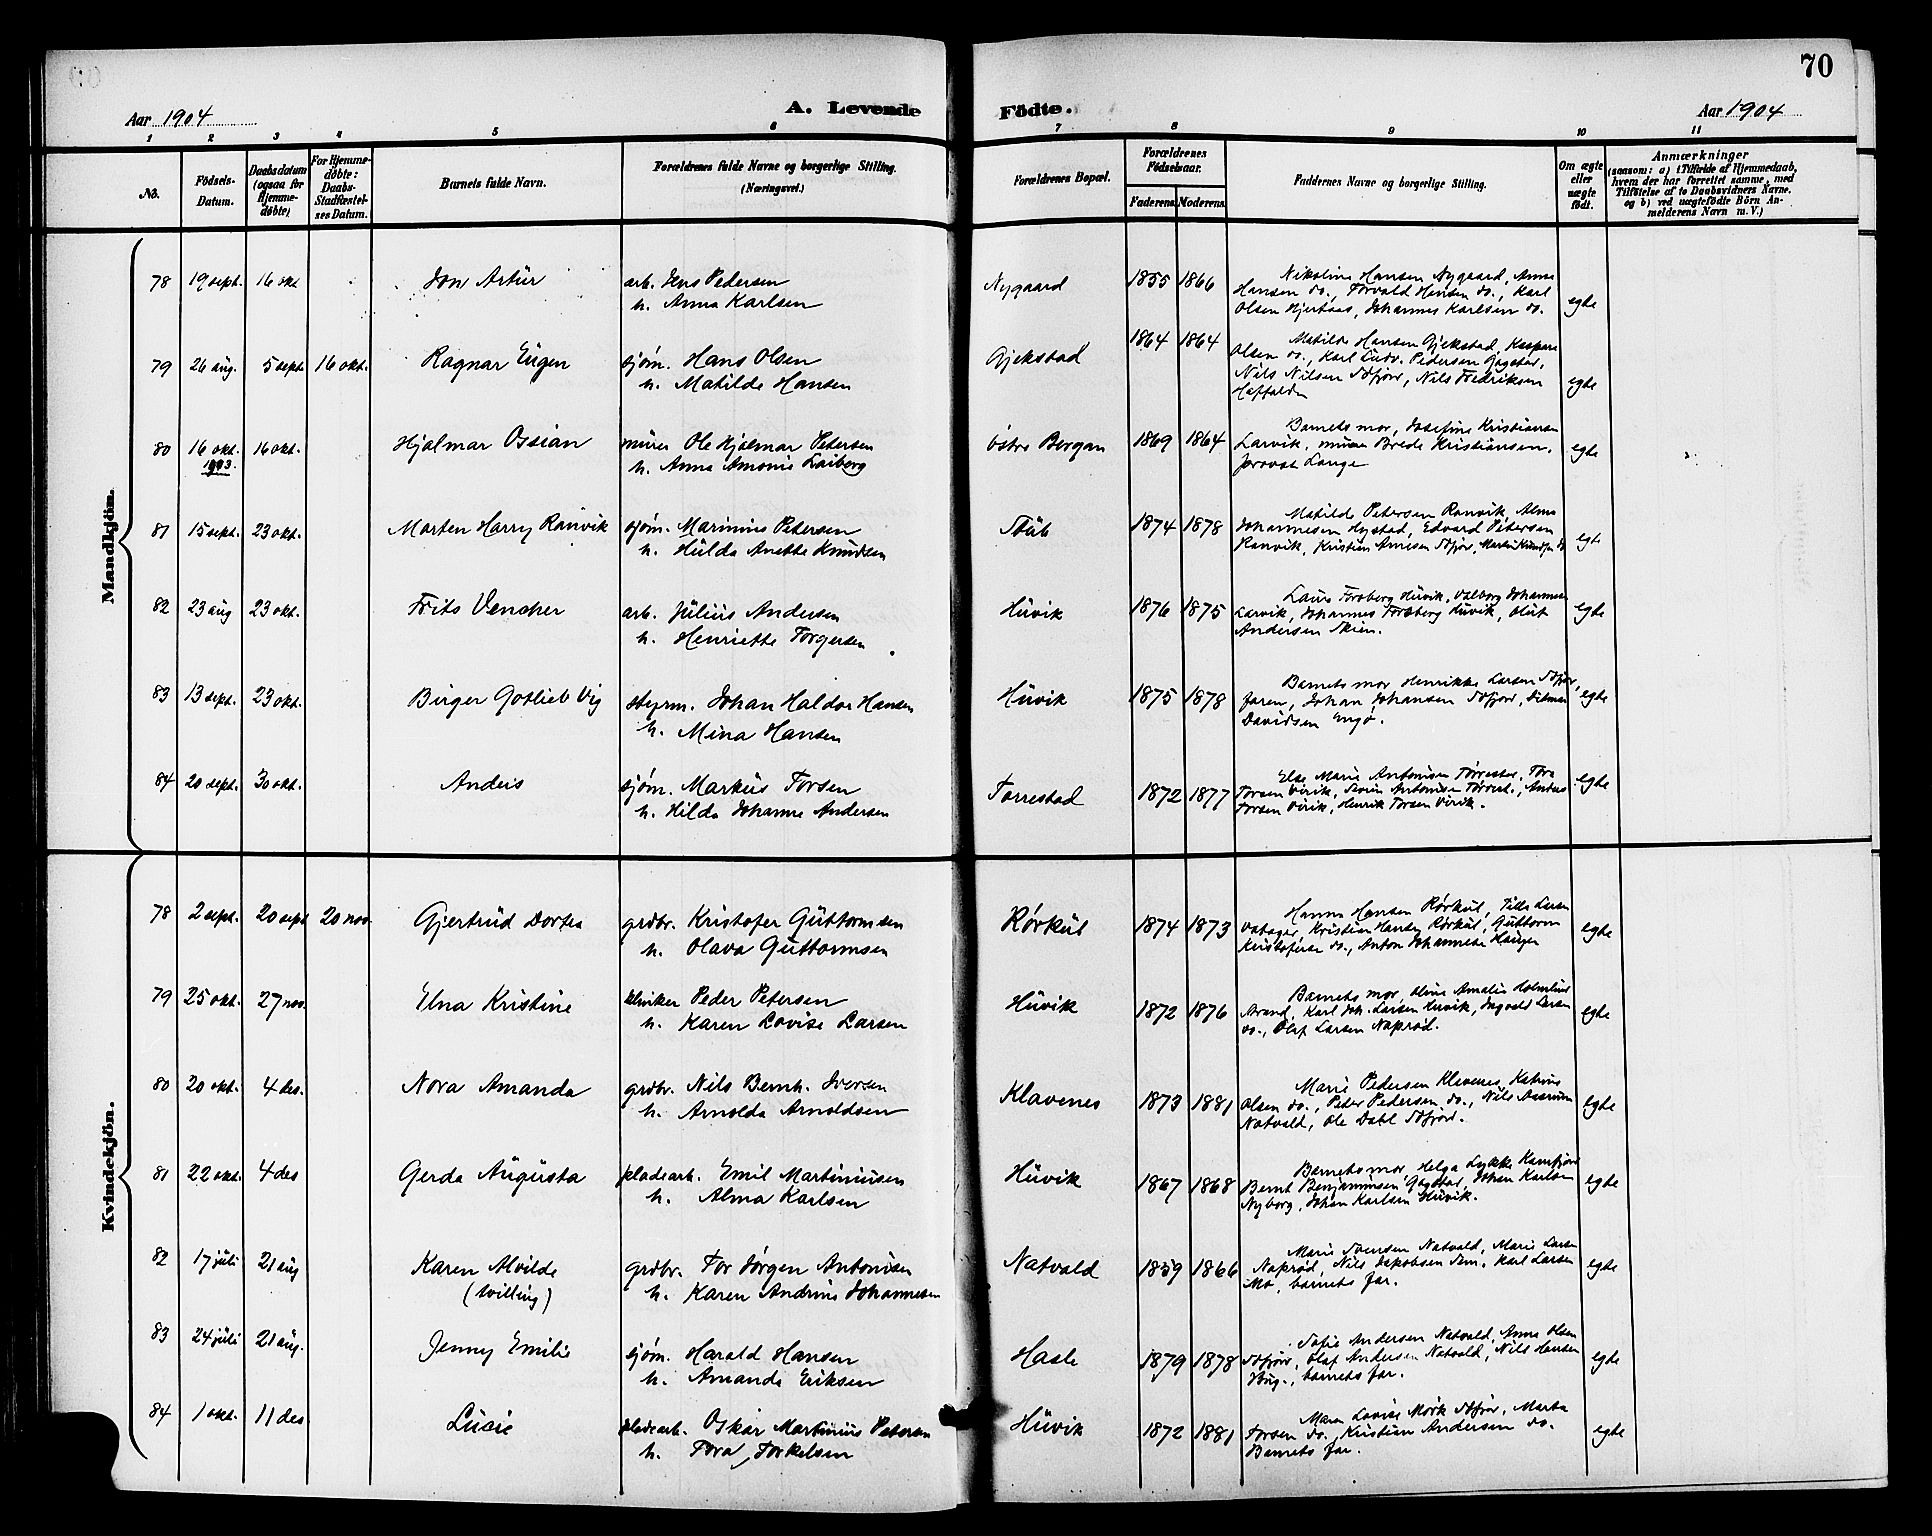 70
Aar 1904
A. Levende Födte.
Aar 1904
1 2 3 4 5 6 7 8 9 10 11
No.
Födsels-
Datum.
Daabsdatum
(ogsaa for
Hjemme-
döbte)
For Hjemme-
döbte:
Daabs-
Stadfæstel-
ses Datum.
Barnets fulde Navn.
Forældrenes fulde Navne og borgerlige Stilling.
(Næringsvei.)
Forældrenes Bopæl.
Forældrenes
Födselsaar.
Faderens. Moderens.
Faddernes Navne og borgerlige Stilling.
Om ægte
eller
uægte
födt.
Anmærkninger
(saasom: a) i Tilfælde af Hjemmedaab,
hvem der har forrettet samme, med
Tilföielse af to Daabsvidners Navne.
og b) ved uægtefödte Börn An-
melderens Navn m. V.)
Mandkjön.
78 19 sept. 16 okt Jon Artur arb. Jens Pedersen
h. Anna Karlsen
Nygaard 1855 1866 Nikoline Hansen Nygaard, Anna
Hansen do., Torvald Hansen do., Karl
Olsen Hjertaas, Johannes Karlsen do.
egte
79 26 aug. 5 sept. 16 okt. Ragnar Eugen sjøm. Hans Olsen
h. Matilde Hansen
Gjekstad 1864 1864 Matilde Hansen Gjekstad, Kaspara
Olsen do., Karl Ludv. Pedersen Gogstad,
Nils Nilsen Sdfjord, Nils Fredriksen
egte
80 16 okt. 16 okt. Hjalmar Ossian murer Ole Hjalmar Petersen
1903. h. Anna Amonie Laiborg
østre Bergan 1869 1864 Barnets mor, Josefine Kristiansen
Larvik, murer Brede Kristiansen,
provst Lange
egte
81 15 sept. 23 okt. Marten Harry Ranvik sjøm. Marinius Petersen
h. Hulda Anette Knudsen
Stub 1874 1878 Matilde Petersen Ranvik, Alma
Johannesen Nystad, Edvard Petersen
Ranvik, Kristian Arnesen Sdfjor, Martin Knudsen do
egte
82 23 aug 23 okt. Frits Vencher arb. Julius Andersen
h. Henriette Torgersen
Huvik 1876 1875 Laura Forsberg Huvik, Valborg Johannesen
Larvik, Johannes Forsberg Huvik, Olut
Andersen Skien.
egte
83 13 sept. 23 okt. Birger Gotlieb Vig styrm. Johan Haldor Hansen
h. Mina Hansen
Huvik 1875 1878 Barnets mor Henrikke Larsen Sdfjor,
faren, Johan Johansen Sdfjord, Ditman
Davidsen Engø.
egte
84 20 sept. 30 okt. Anders sjøm. Markus Torsen
h. Hilda Johanne Andersen
Torrestad 1872 1877 Else Marie Antonisen Tørrestad, Tora
Torsen Virik, Sevrin Antonisen Tørrest., Anders
Torsen Virik, Henrik Torsen Virik.
egte
Kvindekjön.
78 2 sept. 20 sept 20 nov. Gjertrud Dortea grdbr. Kristofer Guttormsen
h. Olava Guttormsen
Rørkul 1874 1873 Hanna Hansen Rørkul, Tilla Larsen
Kristian Hansen Rørkul, Guttorm
Kristofersen do., Anton Johannesen Haugen
egte
79 25 okt. 27 nov. Elna Kristine klinker Peder Petersen
h. Karen Lovise Larsen
Huvik 1872 1876 Barnets mor, Oline Amalie Holmlund
Strand, Karl Joh. Larsen Huvik, Ingvald Larsen
do., Olaf Larsen Naprød.
egte
80 20 okt. 4 des. Nora Amanda grdbr. Nils Bernh. Iversen
h. Arnolda Arnoldsen
Klavenes 1873 1881 Marie Pedersen Klavenes, Katrine
Olsen do., Peter Pedersen do., Nils Assrum
Natvald, Ole Dahl Sdfjord.
egte
81 22 okt. 4 des Gerda Augusta pladearb. Emil Martiniusen
h. Alma Karlsen
Huvik 1867 1868 Barnets mor, Helga Lykke Kamfjord
Bernt Benjaminsen Gogstad, Johan Karlsen
Nyborg, Johan Karlsen Huvik.
egte
82 17 juli 21 aug Karen Alvilde grdbr. Tor Jørgen Antonisen
(tvilling) h. Karen Andrine Johannesen
Natvald 1859 1866 Marie Svensen Natvald, Marie Larsen
Naprød, Nils Jakobsen Sem, Karl Larsen
Mo, barnets far.
egte
83 24 juli 21 aug. Jenny Emilie sjøm. Harald Hansen
h. Amanda Eriksen
Hasle 1879 1878 Sofie Andersen Natvald, Anna Olsen
Sdfjor, Olaf Andersen Natvald, Nils Hansen
barnets far.
egte
84 1 okt. 11 des Lucie pladearb. Oskar Martinius Petersen
h. Tora Torkelsen
Huvik 1872 1881 Maren Lovise Mørk Sdfjor, Marta
Torsen do., Kristian Andersen do.
Barnets far.
egte